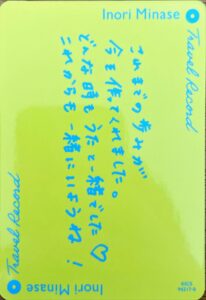 Inori Minase
Travel Record
これまでの歩みが
今を作ってくれました。
どんな時もうたと一緒でした♡
これからも一緒にいようね！
Travel Record
Inori Minase